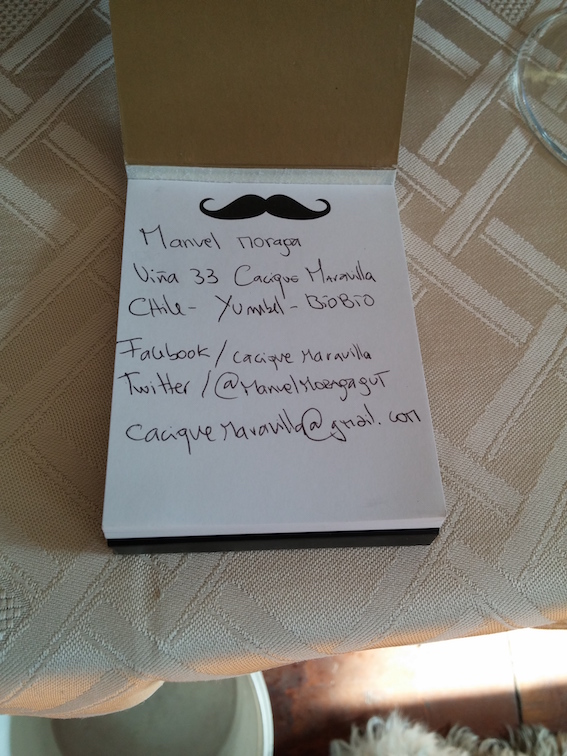 Manuel Moraga
Viña 33 Cacique Maravilla
CHile - Yumbel - BÍOBÍO
Facebook / cacique Maravilla
Twitter / @ManuelMoragaguT
caciqueMaravilla@gmail.com